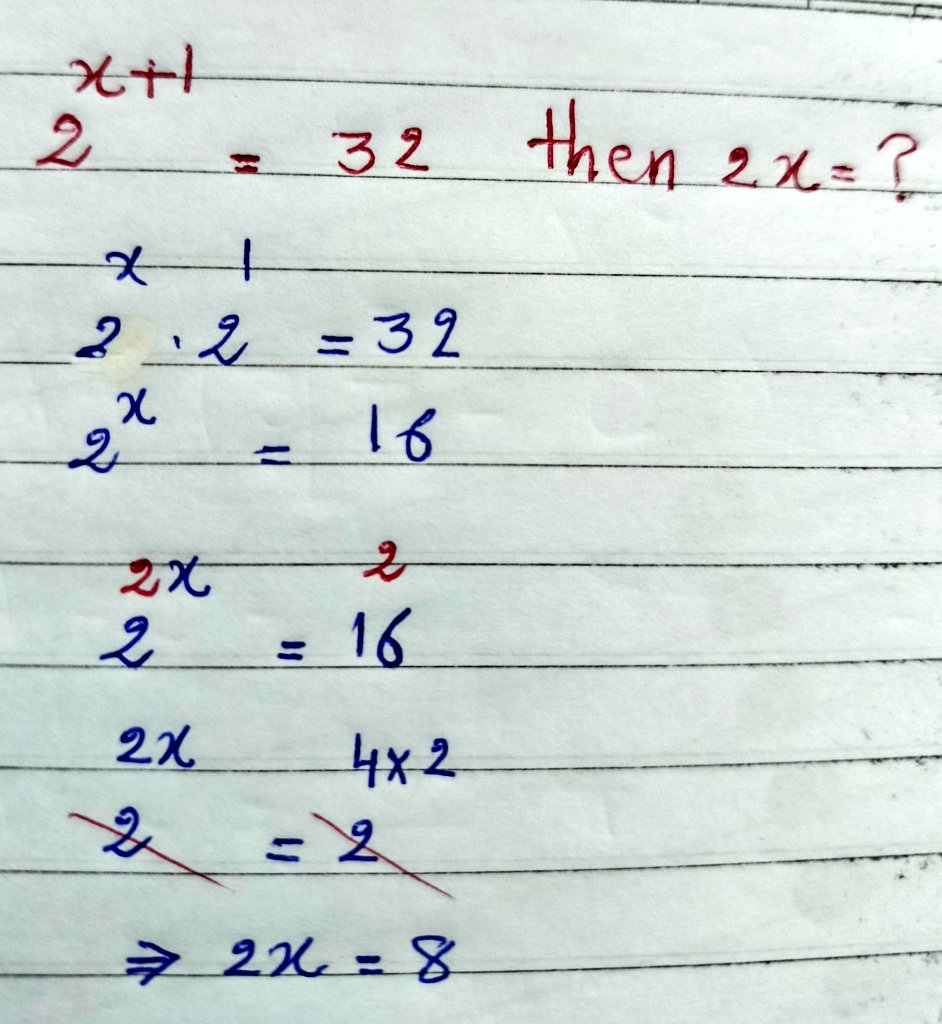 2^{x+1} = 32 then 2x = ?
2^x · 2^1 = 32
2^x = 16
2^{2x} = 16^2
2^{2x} = 2^{4×2}
⇒ 2x = 8